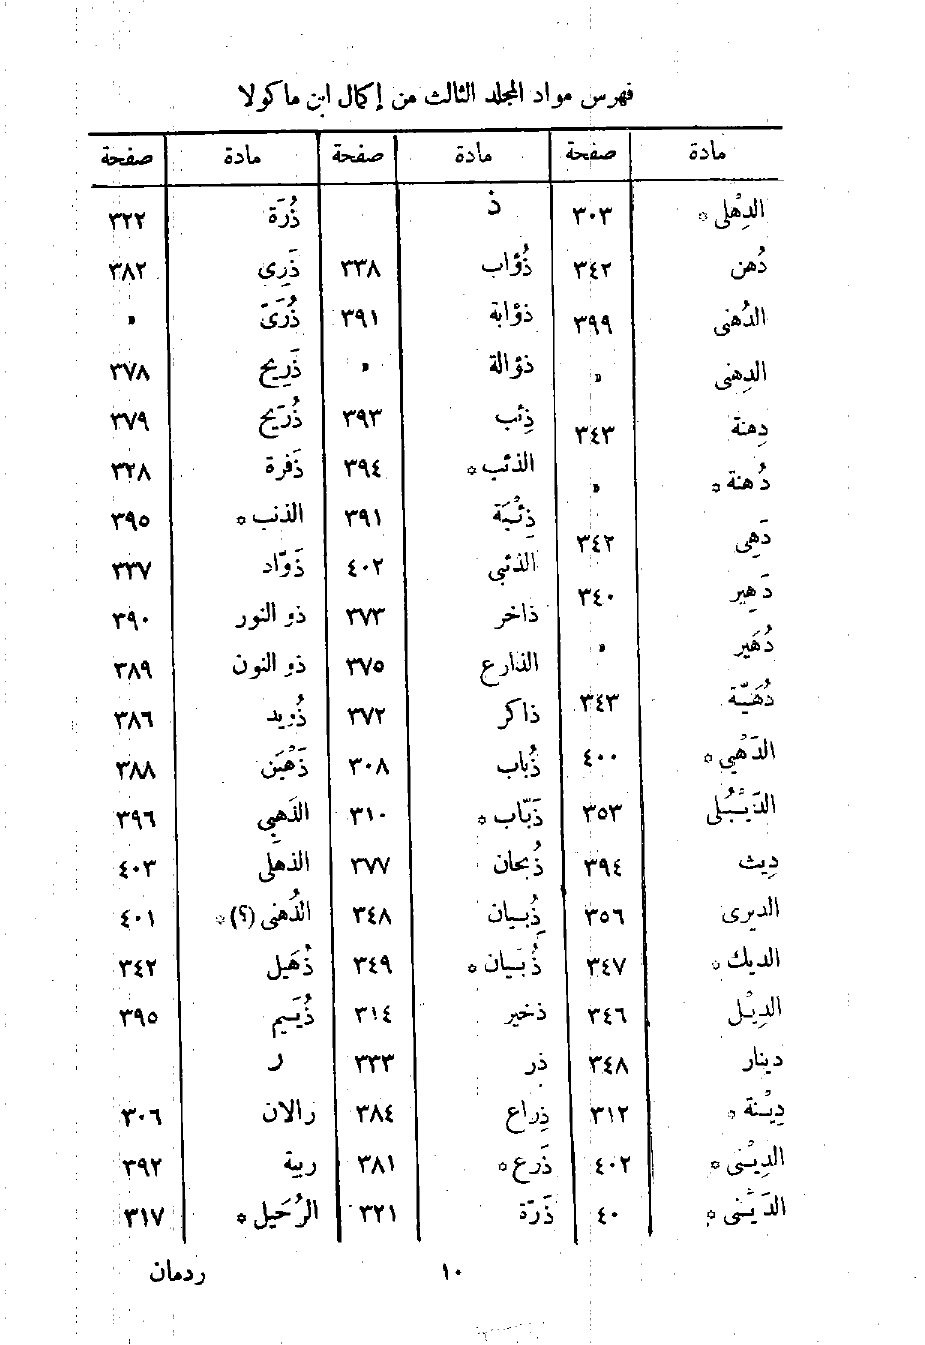 فهرس مواد المجلد الثالث من إكمال ابن ماكولا
مادة صفحة مادة صفحة مادة صفحة
الدِهلى * ٣٠٣ ذ ذُرَة ٣٢٢
دُهن ٣٤٢ ذُؤاب ٣٣٨ ذَرِى ٣٨٢
الدُهنى ٣٩٩ ذؤابة ٣٩١ ذُرَىّ »
الدِهنى » ذؤالة » ذَرِيح ٣٧٨
دِهنة ٣٤٣ ذِئب ٣٩٣ ذُرَيح ٣٧٩
دُهنة * » الذئب * ٣٩٤ ذَفرة ٣٢٨
دَهِى ٣٤٢ ذِئْبَة ٣٩١ الذنب * ٣٩٥
دَهِير ٣٤٠ الذئبى ٤٠٢ ذَوّاد ٣٣٧
دُهَير » ذاخر ٣٧٣ ذو النور ٣٩٠
دُهَيّة ٣٤٣ الذارع ٣٧٥ ذو النون ٣٨٩
الدَهْيي * ٤٠٠ ذاكر ٣٧٢ ذُويد ٣٨٦
الدَيْبُلى ٣٥٣ ذُباب ٣٠٨ ذَهْبَن ٣٨٨
دِيث ٣٩٤ ذَبّاب * ٣١٠ الذَهبِى ٣٩٦
الديرى ٣٥٦ ذُبحان ٣٧٧ الذهلى ٤٠٣
الديك * ٣٤٧ ذُِبيان ٣٤٨ الذُهنى (؟) * ٤٠١
الدِيْل ٣٤٦ ذُبَيان * ٣٤٩ ذُهَيل ٣٤٢
دينار ٣٤٨ ذخير ٣١٤ ذُيَيم ٣٩٥
دِيْنة * ٣١٢ ذر ٣٣٣ ر
الدِيْنى * ٤٠٢ ذِراع ٣٨٤ رالان ٣٠٦
الدَيْنى * ٤٠ ذَرع * ٣٨١ ربية ٣٩٢
ذَرّة ٣٢١ الرُحَيل * ٣١٧
١٠ ردمان